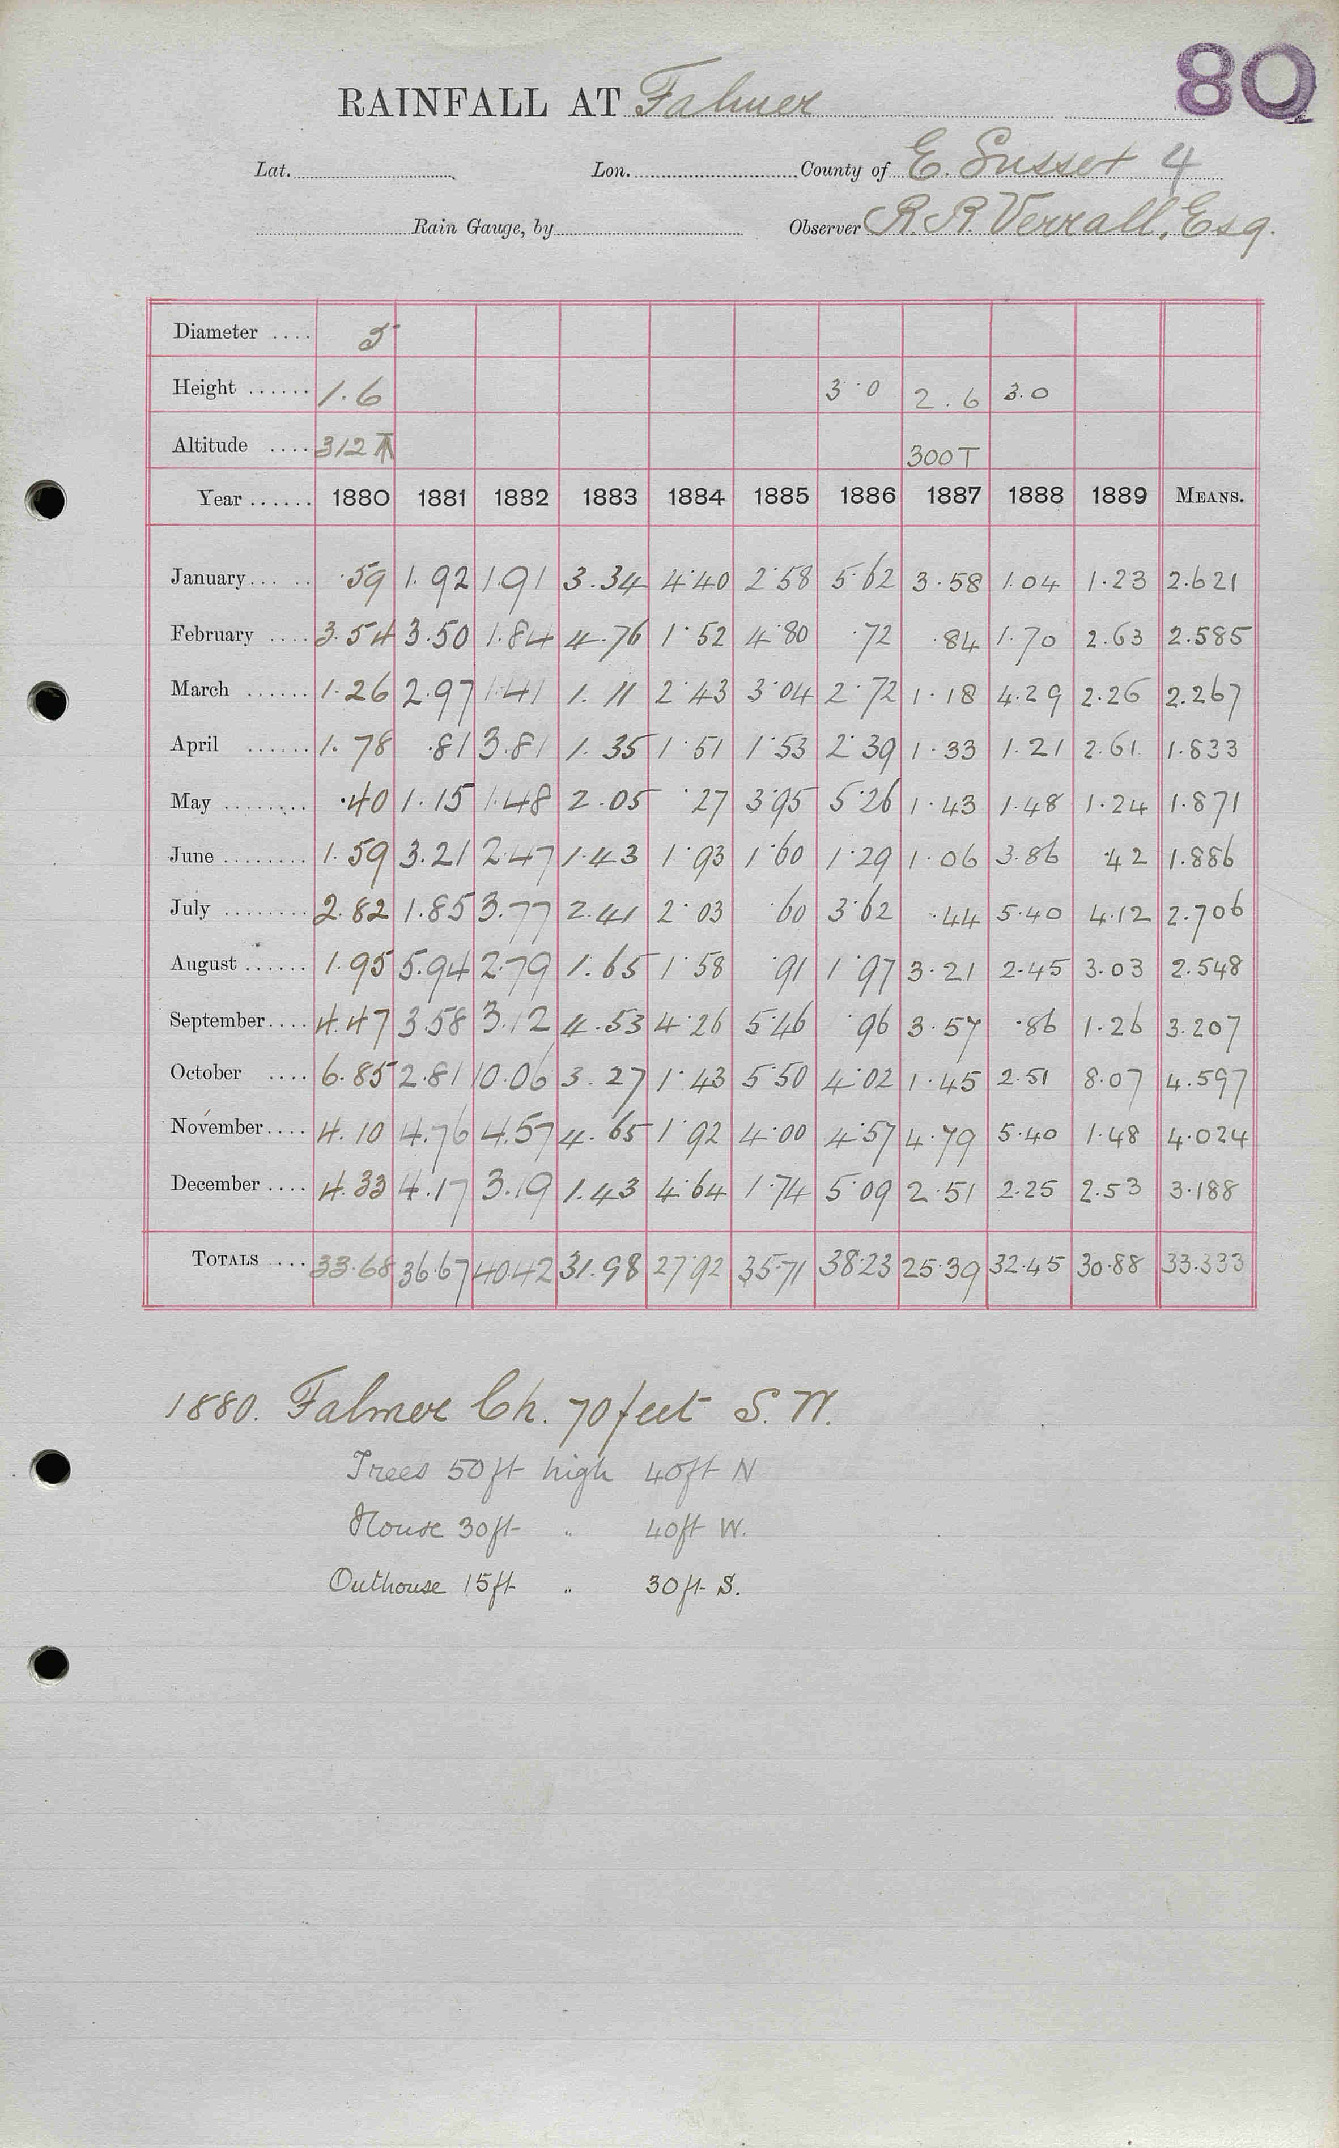 80
RAINFALL AT Falmer
Lat. Lon. County of E. Sussex 4
Rain Gauge, by Observer R. R. Verrall, Esq.
Diameter .... 5
Height ...... 1.6 3.0 2.6 3.0
Altitude .... 312 300 T
Year ...... 1880 1881 1882 1883 1884 1885 1886 1887 1888 1889 MEANS.
January ... .. .59 1.92 1.91 3.34 4.40 2.58 5.62 3.58 1.04 1.23 2.621
February .... 3.54 3.50 1.84 4.76 1.52 4.80 .72 .84 1.70 2.63 2.585
March ...... 1.26 2.97 1.41 1.11 2.43 3.04 2.72 1.18 4.29 2.26 2.267
April ...... 1.78 .81 3.81 1.35 1.51 1.53 2.39 1.33 1.21 2.61 1.833
May ........ .40 1.15 1.48 2.05 .27 3.95 5.26 1.43 1.48 1.24 1.871
June ........ 1.59 3.21 2.47 1.43 1.93 1.60 1.29 1.06 3.86 .42 1.886
July ........ 2.82 1.85 3.77 2.41 2.03 .60 3.62 .44 5.40 4.12 2.706
August ...... 1.95 5.94 2.79 1.65 1.58 .91 1.97 3.21 2.45 3.03 2.548
September .... 4.47 3.58 3.12 4.53 4.26 5.46 .96 3.57 .86 1.26 3.207
October .... 6.85 2.81 10.06 3.27 1.43 5.50 4.02 1.45 2.51 8.07 4.597
November .... 4.10 4.76 4.57 4.65 1.92 4.00 4.57 4.79 5.40 1.48 4.024
December .... 4.33 4.17 3.19 1.43 4.64 1.74 5.09 2.51 2.25 2.53 3.188
TOTALS .... 33.68 36.67 40.42 31.98 27.92 35.71 38.23 25.39 32.45 30.88 33.333
1880. Falmer Ch. 70 feet S.W.
Trees 50ft high 40ft N
House 30ft " 40ft W.
Outhouse 15ft " 30ft S.